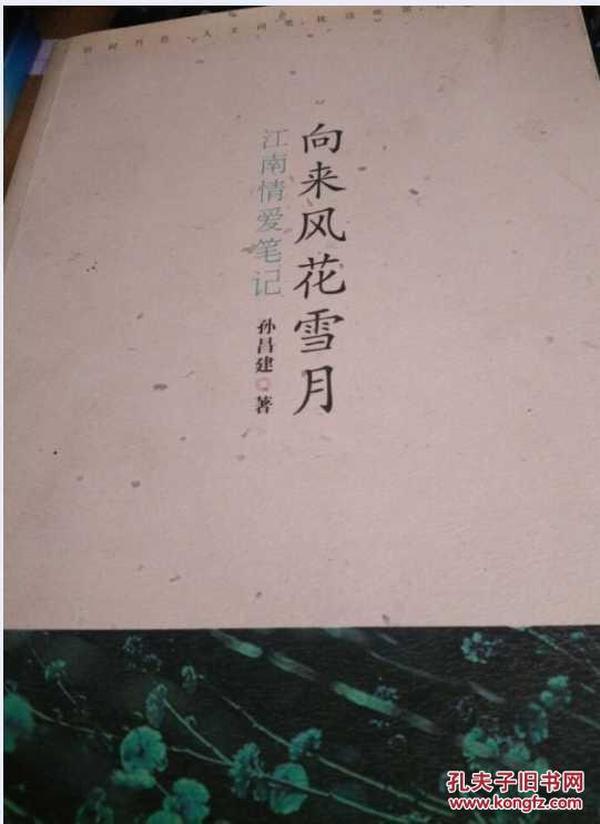 向来风花雪月
江南情爱笔记
孙昌建 著
孔夫子旧书网
www.kongfz.com